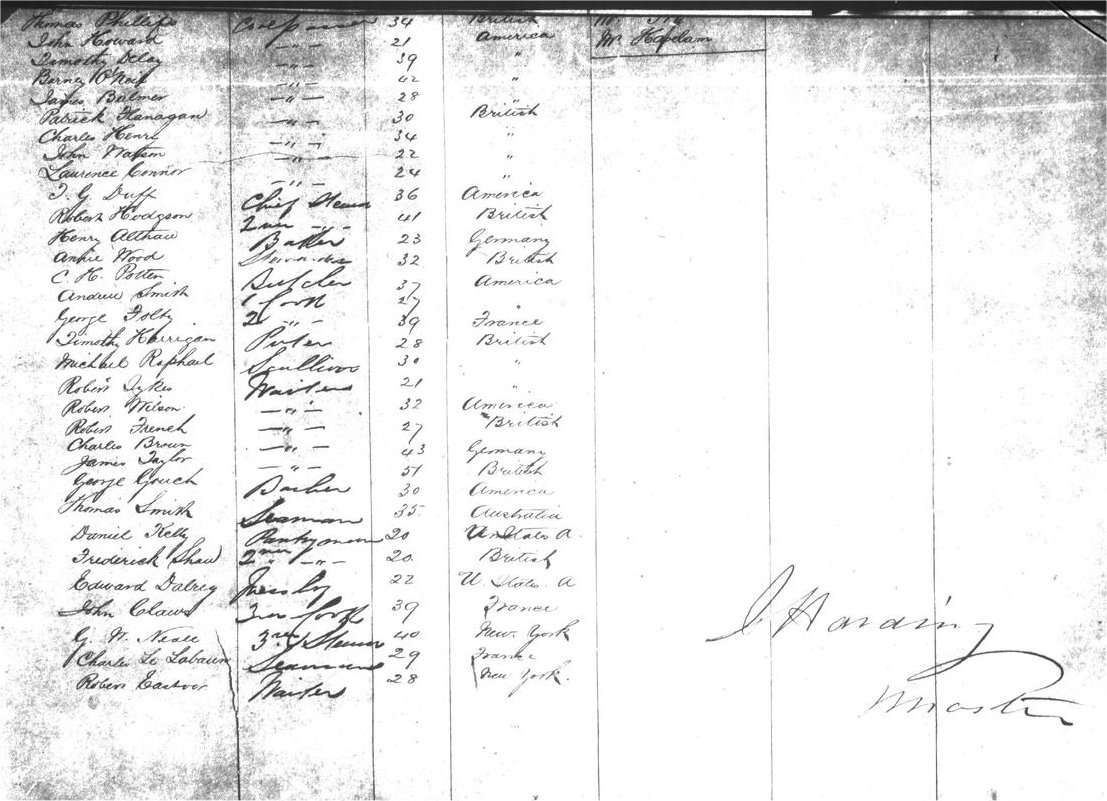 Thomas Phillips Coal passer 34 British Mr.
John Howard — " — 21 America Mr Hapdam
Timothy Delay — " — 39 "
Barney O'Neil — " — 42 "
James Bulmer — " — 28 "
Patrick Flanagan — " — 30 British
Charles Henri — " — 34 "
John Watson — " — 22 "
Laurence Connor — " — 24 "
T. G. Duff Chief Stewd 36 America
Robert Hodgson 2nd — " — 41 British
Henry Althau Baker 23 Germany
Annie Wood Stewardess 32 British
C. H. Potter Butcher 37 America
Andrew Smith 1 Cook 27 "
George Folty 2 — " — 39 France
Timothy Harrigan Porter 28 British
Michael Raphael Scullion 30 "
Robert Sykes Waiters 21 "
Robert Wilson — " — 32 America
Robert French — " — 27 British
Charles Brown — " — 43 Germany
James Taylor — " — 51 British
George Gouch Barber 30 America
Thomas Smith Seaman 35 Australia
Daniel Kelly Pantryman 20 Un States A.
Frederick Shaw 2nd — " — 20 British
Edward Dalrey 22 U States A
John Claws 3rd Cook 39 France
G. W. Neall 3rd Steward 40 New York
Charles Le Labaun Seaman 29 France
Robert Waiter 28 New York.
J Harding
Master